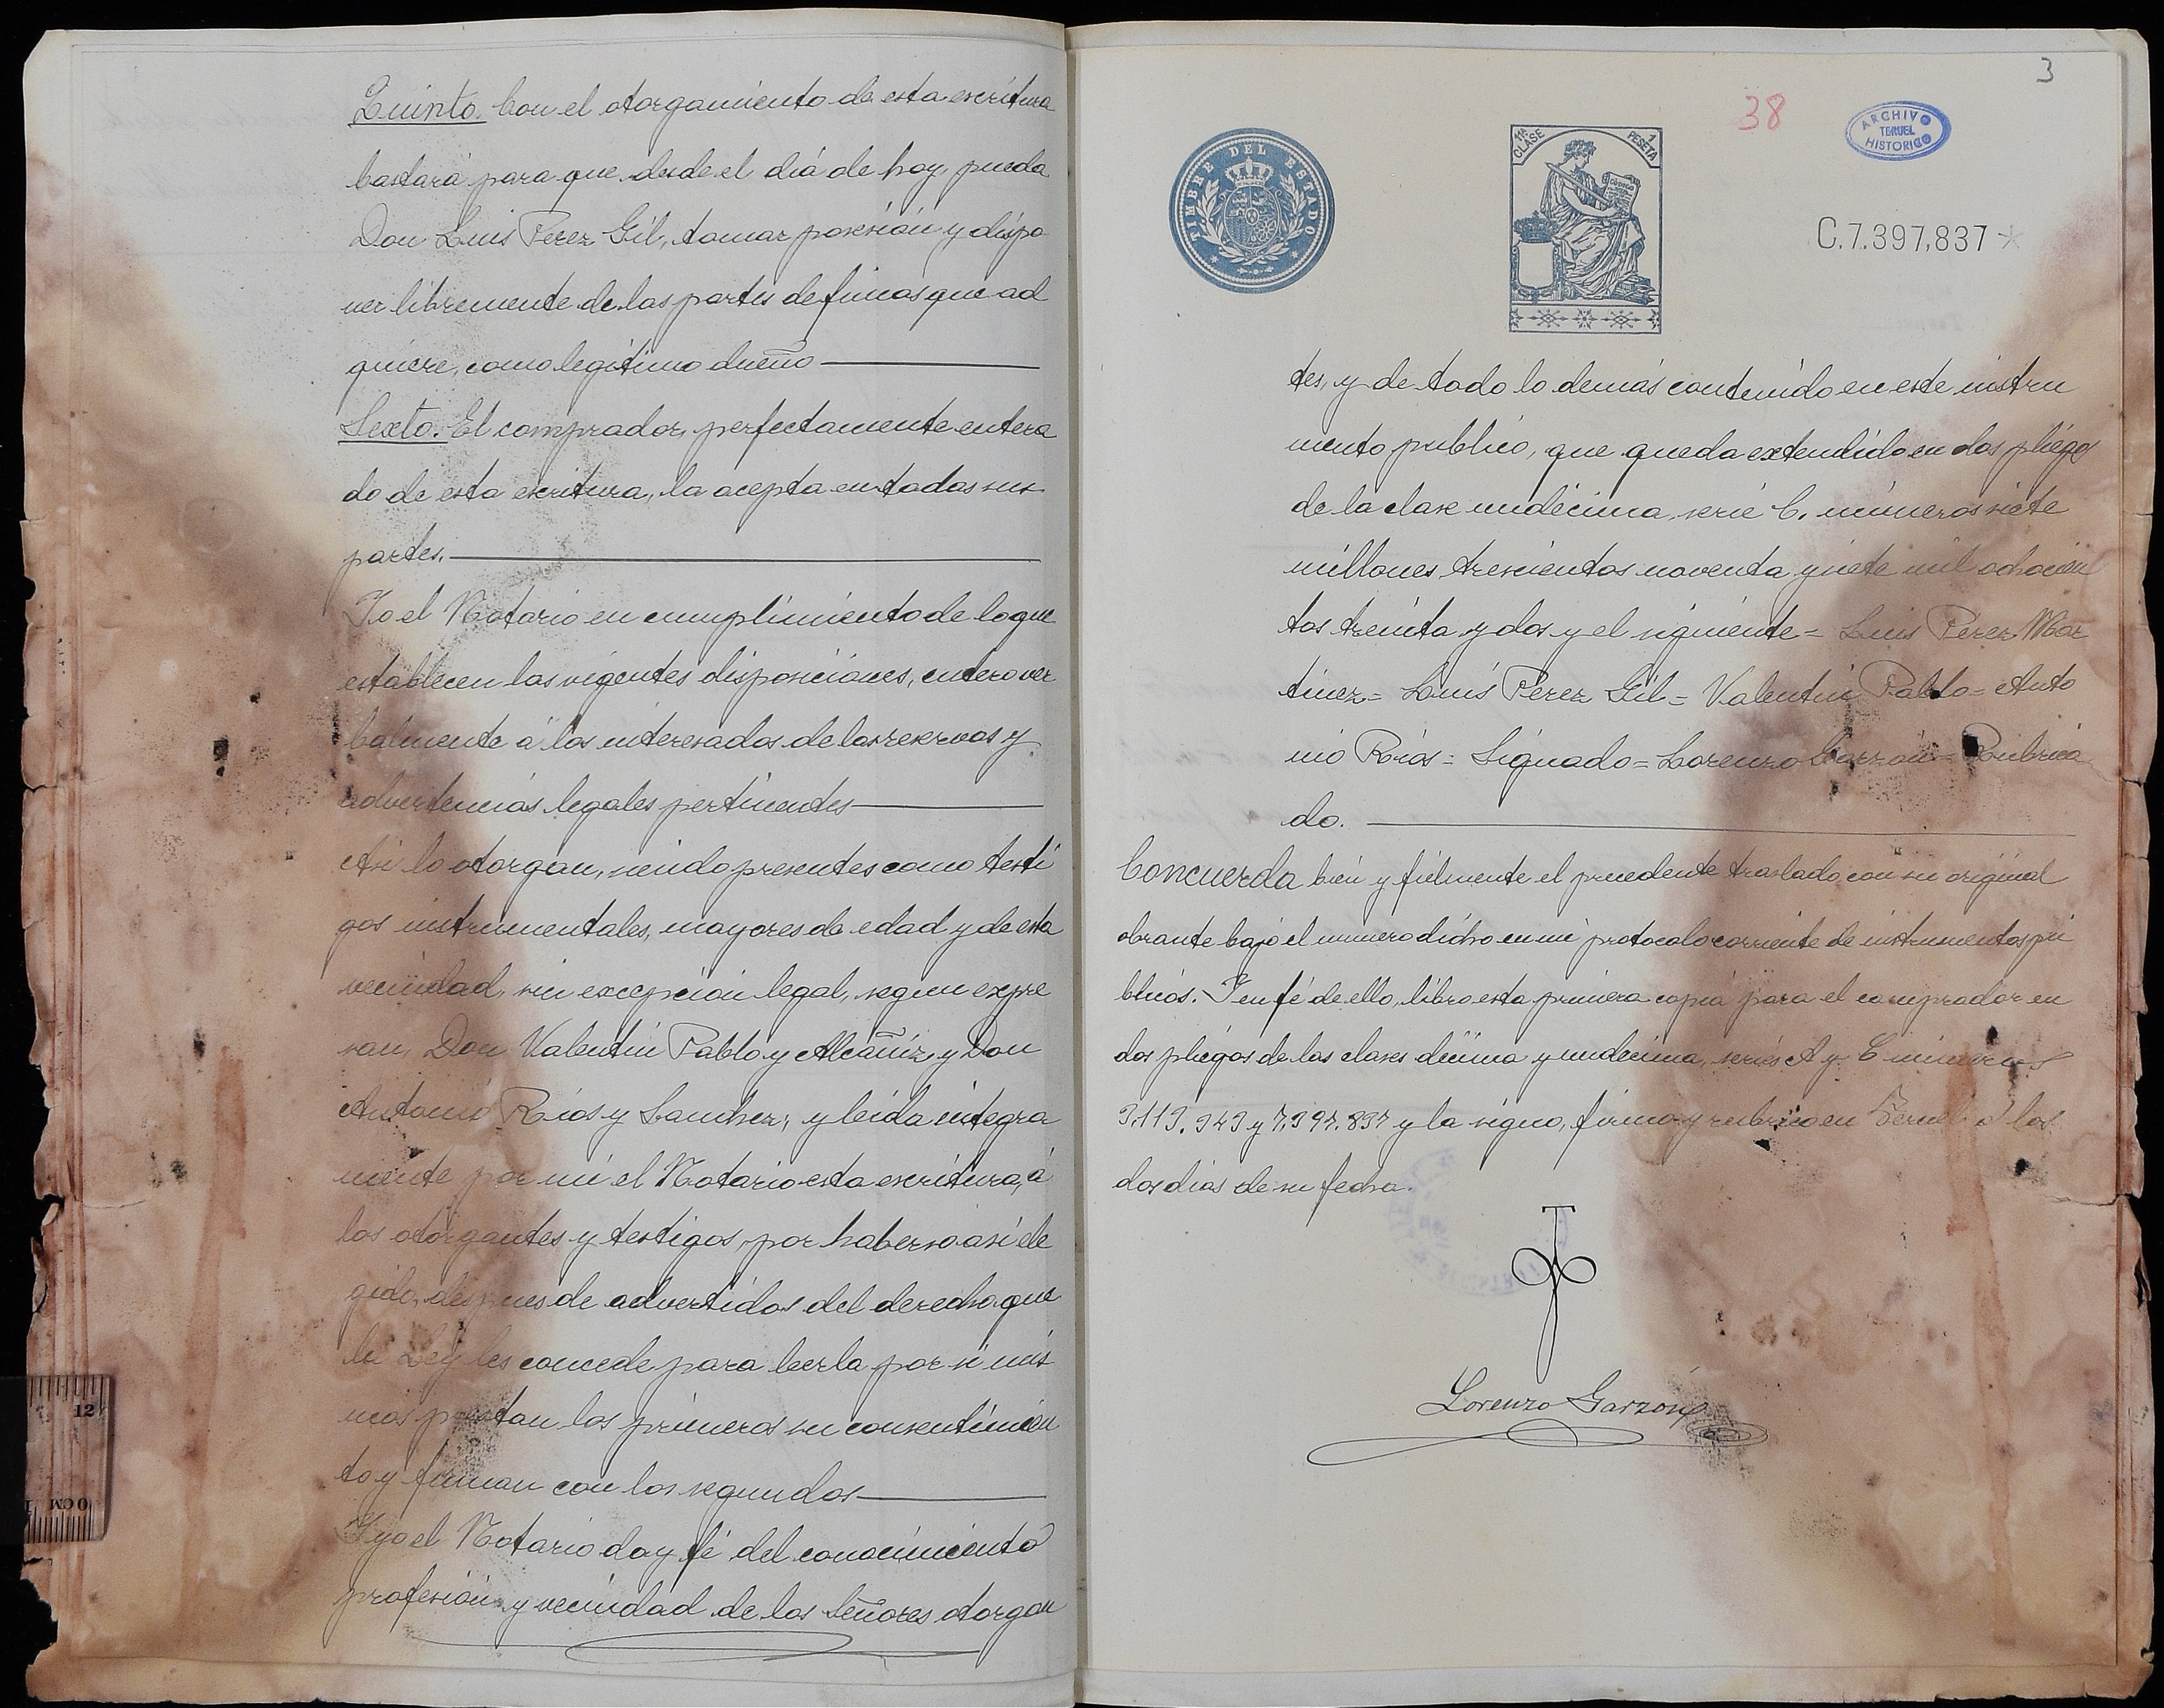 Quinto. Con el otorgamiento de esta escritura
bastará para que desde el día de hoy, pueda
Don Luis Perez Gil, tomar posesión y dispo
ner libremente de las partes de fincas que ad
quiere, como legítimo dueño
Sexto. El comprador, perfectamente entera
do de esta escritura, la acepta en todas sus
partes.
Yo el Notario en cumplimiento de lo que
establecen las vigentes disposiciones, entero ver
balmente á los interesados de las reservas y
advertencias legales pertinentes
Asi lo otorgan, siendo presentes como testi
gos instrumentales, mayores de edad y de esta
vecindad, sin excepción legal, segun expre
san, Don Valentin Pablo y Alcañiz, y Don
Antonio Rios y Sanchez, y leida integra
mente por mi el Notario esta escritura, á
los otorgantes y testigos, por haberlo asi ele
gido, despues de advertidos del derecho que
la Ley les concede para leerla por si mis
mos prestan los primeros su consentimien
to y firman con los segundos
Y yo el Notario doy fé del conocimiento
profesión y vecindad de los Señores otorgan
3
38
ARCHIVO
TERUEL
HISTORICO
TIMBRE DEL ESTADO
11ª CLASE
1 PESETA
CODIGO
C.7.397,837
tes, y de todo lo demás contenido en este instru
mento publico, que queda extendido en dos pliegos
de la clase undécima, serie C. números siete
millones trescientos noventa y siete mil ochocien
tos treinta y dos y el siguiente = Luis Perez Mar
tinez = Luis Perez Gil = Valentin Pablo = Anto
nio Rios = Signado = Lorenzo Garzón = Rubrica
do.
Concuerda bien y fielmente el precedente traslado con su original
obrante bajo el numero dicho en mi protocolo corriente de instrumentos pú
blicos. Y en fé de ello, libro esta primera copia para el comprador en
dos pliegos de las clases décima y undécima, series A y C números
3.113.343 y 7.397.837 y la signo, firmo y rubrico en Teruel á los
dos días de su fecha.
Lorenzo Garzón
12
0 CM